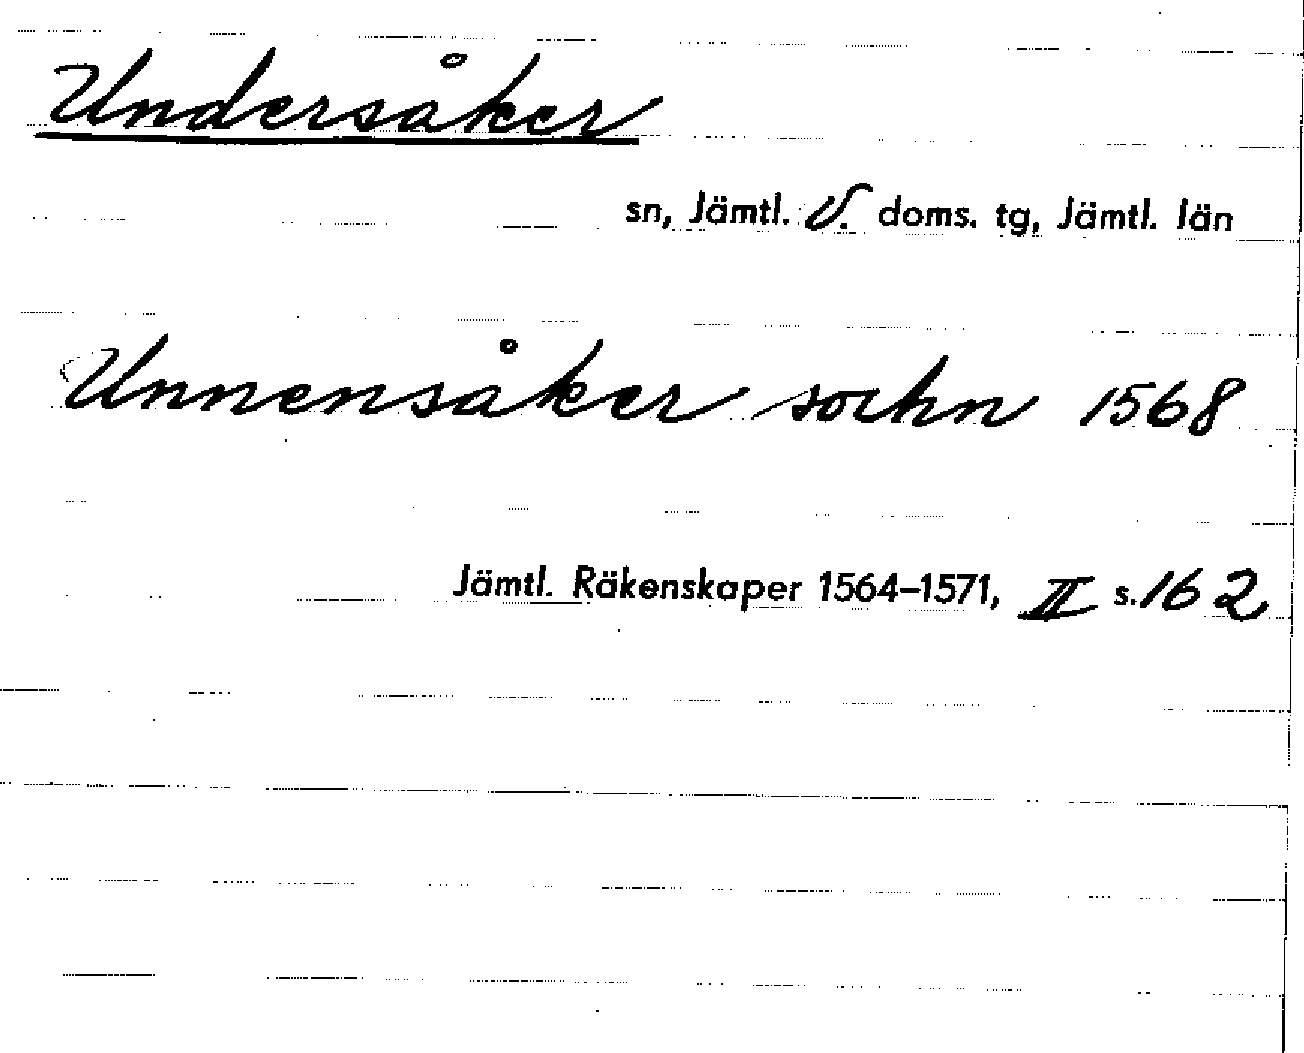 Undersåker
sn, Jämtl. V. doms. tg, Jämtl. län
Unnensåker sochn 1568
Jämtl. Räkenskaper 1564–1571, II s. 162